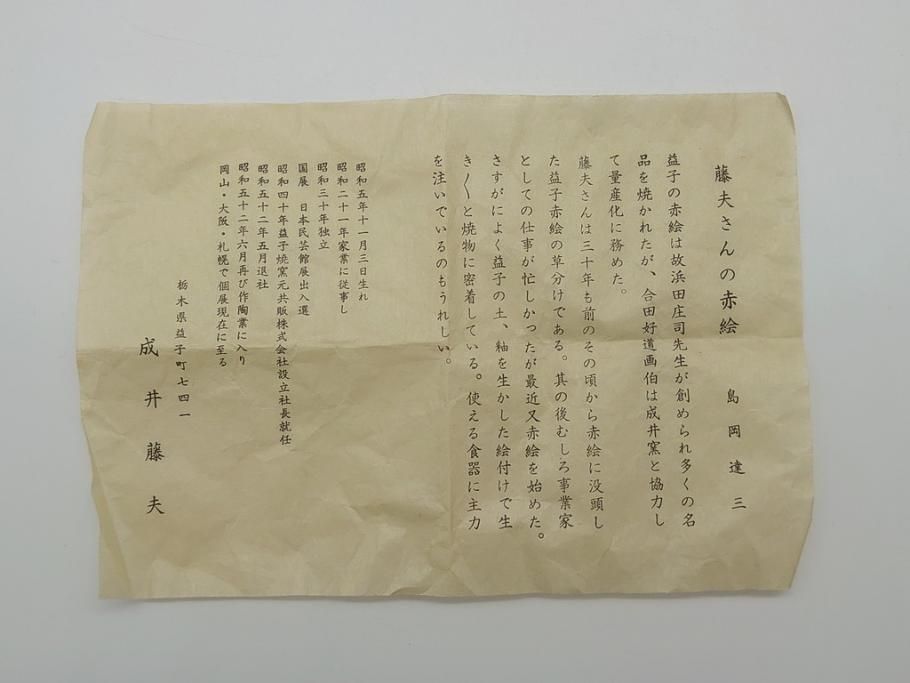 藤夫さんの赤絵　島岡達三
益子の赤絵は故浜田庄司先生が創められ多くの名
品を焼かれたが、合田好道画伯は成井窯と協力し
て量産化に務めた。
藤夫さんは三十年も前のその頃から赤絵に没頭し
た益子赤絵の草分けである。其の後むしろ事業家
としての仕事が忙しかったが最近又赤絵を始めた。
さすがによく益子の土、釉を生かした絵付けで生
き〳〵と焼物に密着している。使える食器に主力
を注いでいるのもうれしい。
昭和五年十一月三日生れ
昭和二十一年家業に従事し
昭和三十年独立
国展　日本民芸館展出入選
昭和四十年益子焼窯元共販株式会社設立社長就任
昭和五十二年五月退社
昭和五十二年六月再び作陶業に入り
岡山・大阪・札幌で個展現在に至る
栃木県益子町七四一
成井藤夫